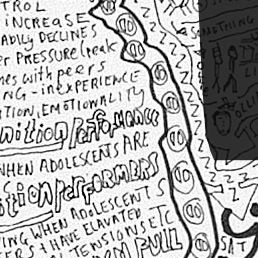 TROL
INCREASE
ADILY DECLINES
ER PRESSURE (Peak
nes with peers
NG-INEXPERIENCE
TION, EMOTIONALITY
nition Performance
WHEN ADOLESCENTS ARE
ition Performers
ING WHEN ADOLESCENTS
EERS & HAVE ELAVATED
TENSIONS ETC
PULL
SOMETHING
SAT